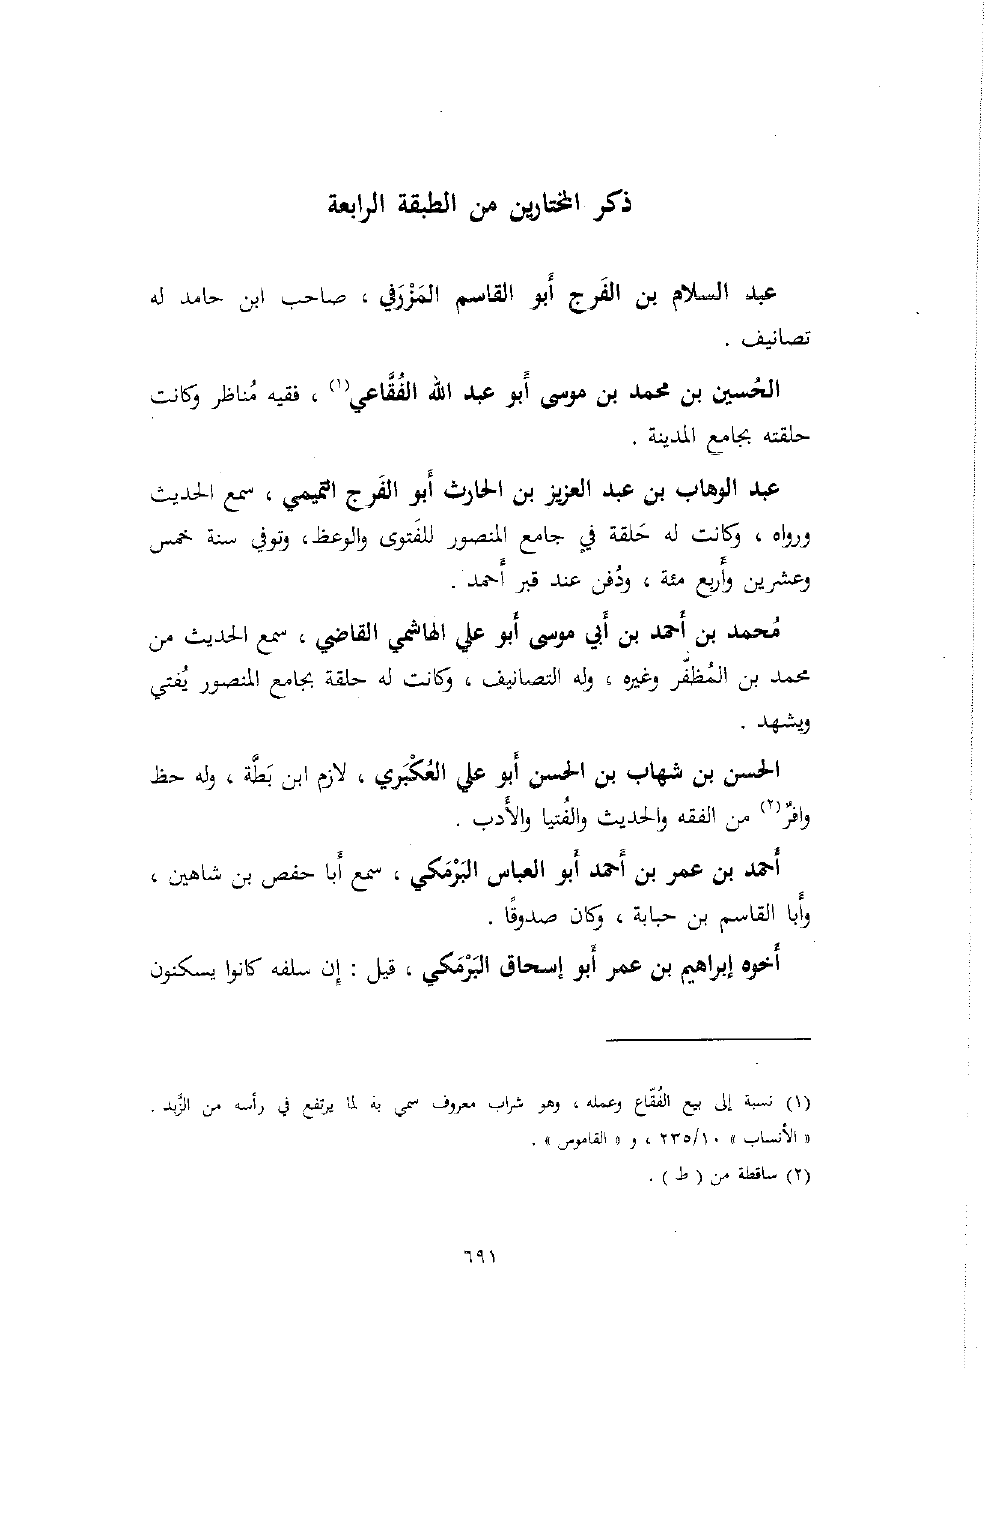 ذكر المختارين من الطبقة الرابعة
عبد السلام بن الفَرج أَبو القاسم المَزْرَفي ، صاحب ابن حامد له
تصانيف .
الحُسين بن محمد بن موسى أَبو عبد الله الفُقَّاعي(١) ، فقيه مُناظر وكانت
حلقته بجامع المدينة .
عبد الوهاب بن عبد العزيز بن الحارث أَبو الفَرج التميمي ، سمع الحديث
ورواه ، وكانت له حَلقة في جامع المنصور للفَتوى والوعظ، وتوفي سنة خمس
وعشرين وأَربع مئة ، ودُفن عند قبر أَحمد .
مُحمد بن أَحمد بن أَبي موسى أَبو علي الهاشمي القاضي ، سمع الحديث من
محمد بن المُظفَّر وغيره ، وله التصانيف ، وكانت له حلقة بجامع المنصور يُفتي
ويشهد .
الحسن بن شهاب بن الحسن أَبو علي العُكْبَري ، لازم ابن بَطَّة ، وله حظ
وافرٌ(٢) من الفقه والحديث والفُتيا والأَدب .
أَحمد بن عمر بن أَحمد أَبو العباس البَرْمَكي ، سمع أَبا حفص بن شاهين ،
وأَبا القاسم بن حبابة ، وكان صدوقًا .
أَخوه إبراهيم بن عمر أَبو إسحاق البَرْمَكي ، قيل : إِن سلفه كانوا يسكنون
(١) نسبة إلى بيع الفُقّاع وعمله ، وهو شراب معروف سمي به لما يرتفع في رأسه من الزَّبد .
« الأنساب » ٢٣٥/١٠ ، و « القاموس » .
(٢) ساقطة من ( ط ) .
٦٩١